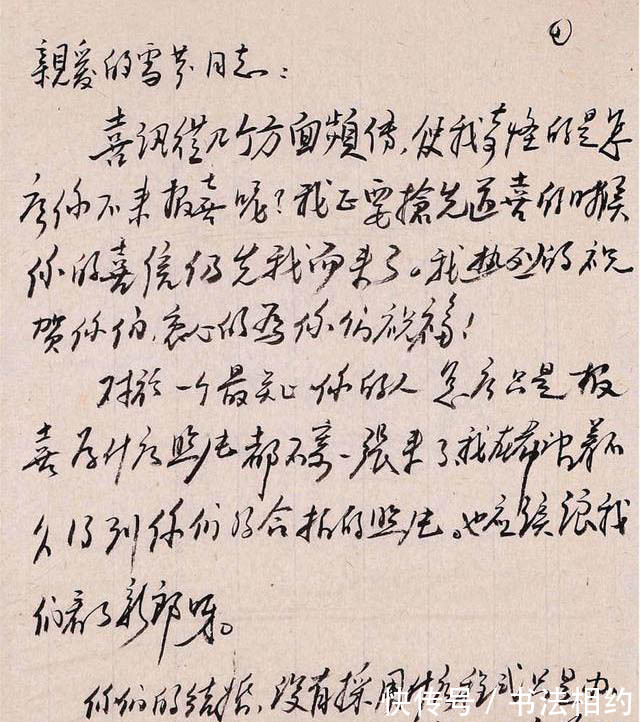 親爱的雪芬同志：
喜讯從几个方面頻传，使我奇怪的是怎
么你不来报喜呢？我正要搶先道喜的时候
你的喜信仍先我而来了。我热烈的祝
贺你们，衷心的为你们祝福！
对於一个最关心你的人怎么只是报
喜为什么照片都不寄一張来了，我在希望着不
久得到你们的合拍的照片。也应该讓我
们看了新郎呀。
你们的结婚，没有採用什么程式只是
快传号 / 书法相约